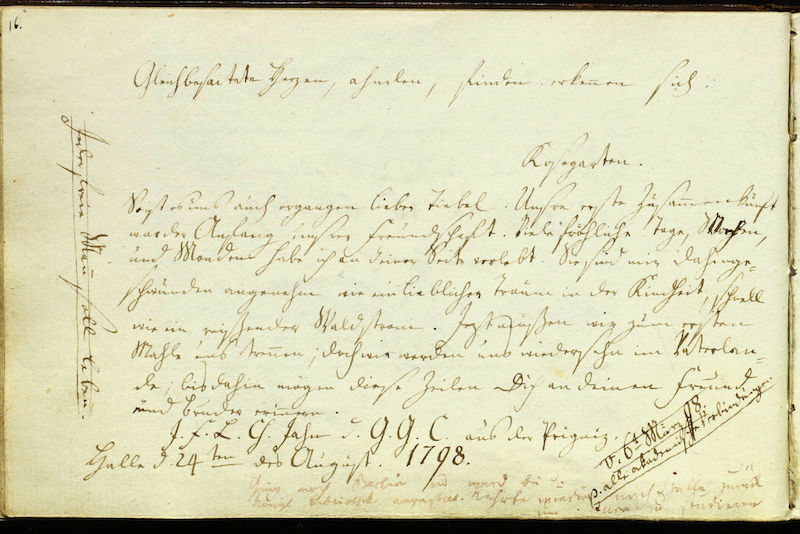 16.
Gleichbesaitete Herzen, ahnden, finden erkennen sich:
Kosegarten.
So ist es uns auch ergangen lieber Tiebel. Unsre erste Zusammenkunft
war der Anfang unsrer Freundschaft. Viele fröhliche Tage, Wochen,
und Monden habe ich an deiner Seite verlebt. Sie sind mir dahinge-
schwunden angenehm wie ein lieblicher Traum in der Kindheit, schnell
wie ein reissender Waldstrom. Jezt müssen wir zum ersten
Mahle uns trennen; doch wir werden uns wiedersehn im Vaterlan-
de; bis dahin mögen diese Zeilen Dich an deinen Freund
und Bruder erinern.
J. F. L. Ch. Jahn d. G. G. C. aus der Prignitz.
Halle d 24ten des August. 1798.
Jeder freie Mann soll leben.
V. 6t März 98.
p. alle akademische Verbindungen
Ging nach Berlin und ward bei d
Königl Bibliothek Kehrte wieder nach Halle zurück
um zu studieren